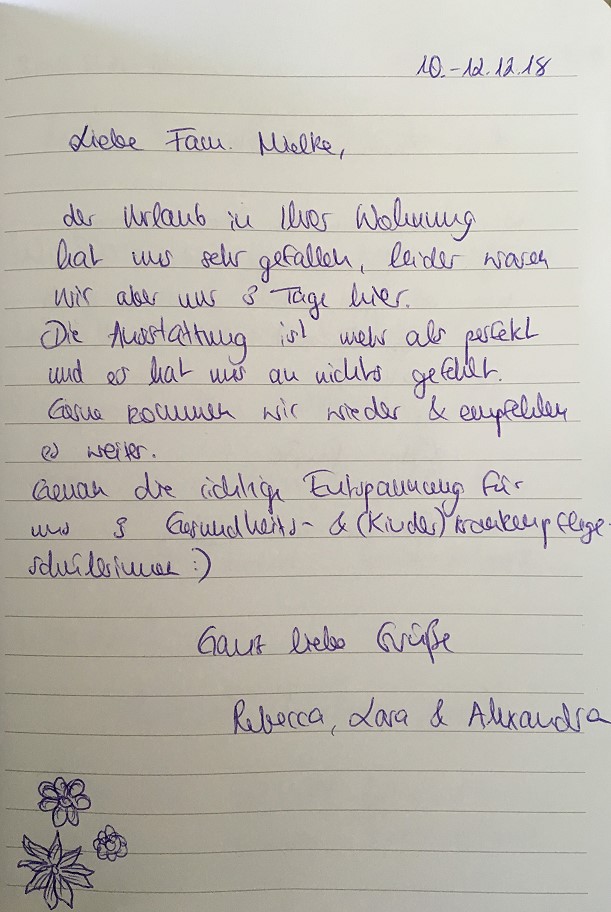 10.-12.12.18
Liebe Fam. Mielke,
der Urlaub in Ihrer Wohnung
hat uns sehr gefallen, leider waren
wir aber nur 3 Tage hier.
Die Ausstattung ist mehr als perfekt
und es hat uns an nichts gefehlt.
Gerne kommen wir wieder & empfehlen
es weiter.
Genau die richtige Entspannung für
uns 3 Gesundheits- & (Kinder)krankenpflege-
schülerinnen :)
Ganz liebe Grüße
Rebecca, Lara & Alexandra